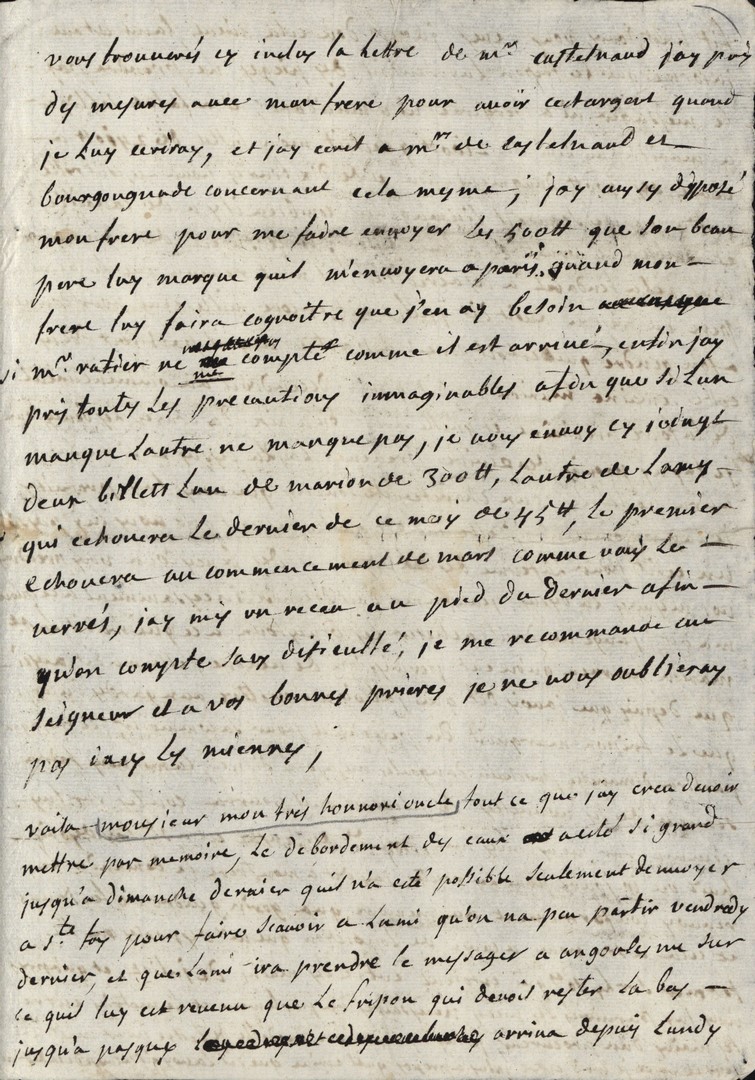 vous trouverés cy inclus la lettre de mr castelnaud jay pris
des mesures avec mon frere pour avoir cest argent quand
je luy ecriray, et jay ecrit a mrs de castelnaud et
bourgougnade concernant cela mesme; jay aussy disposé
mon frere pour me faire envoyer les 500tt que son beau
pere luy marque quil m'envoyera a paris, quand mon
frere luy faira cognoitre que j'en ay besoin
si mr ratier ne me compte comme il est arrivé, enfin jay
pris toutes les precautions immaginables afin que si lun
manque lautre ne manque pas, je vous envoy cy joingt
deux billett lun de marion de 300tt, lautre de lamy
qui echouera le dernier de ce mois de 45tt, le premier
echouera au commencement de mars comme vous le
verrés, jay mis un receu au pied du dernier afin
qu'on compte sans dificulté, je me recommande au
seigneur et a vos bonnes prieres je ne vous oublieray
pas dans les miennes;
voila monsieur mon trés honnoré oncle, tout ce que jay creu devoir
mettre par memoire, le debordement des eaux a esté si grand
jusqu'a dimanche dernier quil n'a esté possible seulement denvoyer
a ste foy pour faire scavoir a lami qu'on na peu partir vendredy
dernier, et que lami ira prendre le messager a angoulesme sur
ce quil luy est revenu que le fripon qui devoit rester la bas
jusqu'a pasques arriva depuis lundy